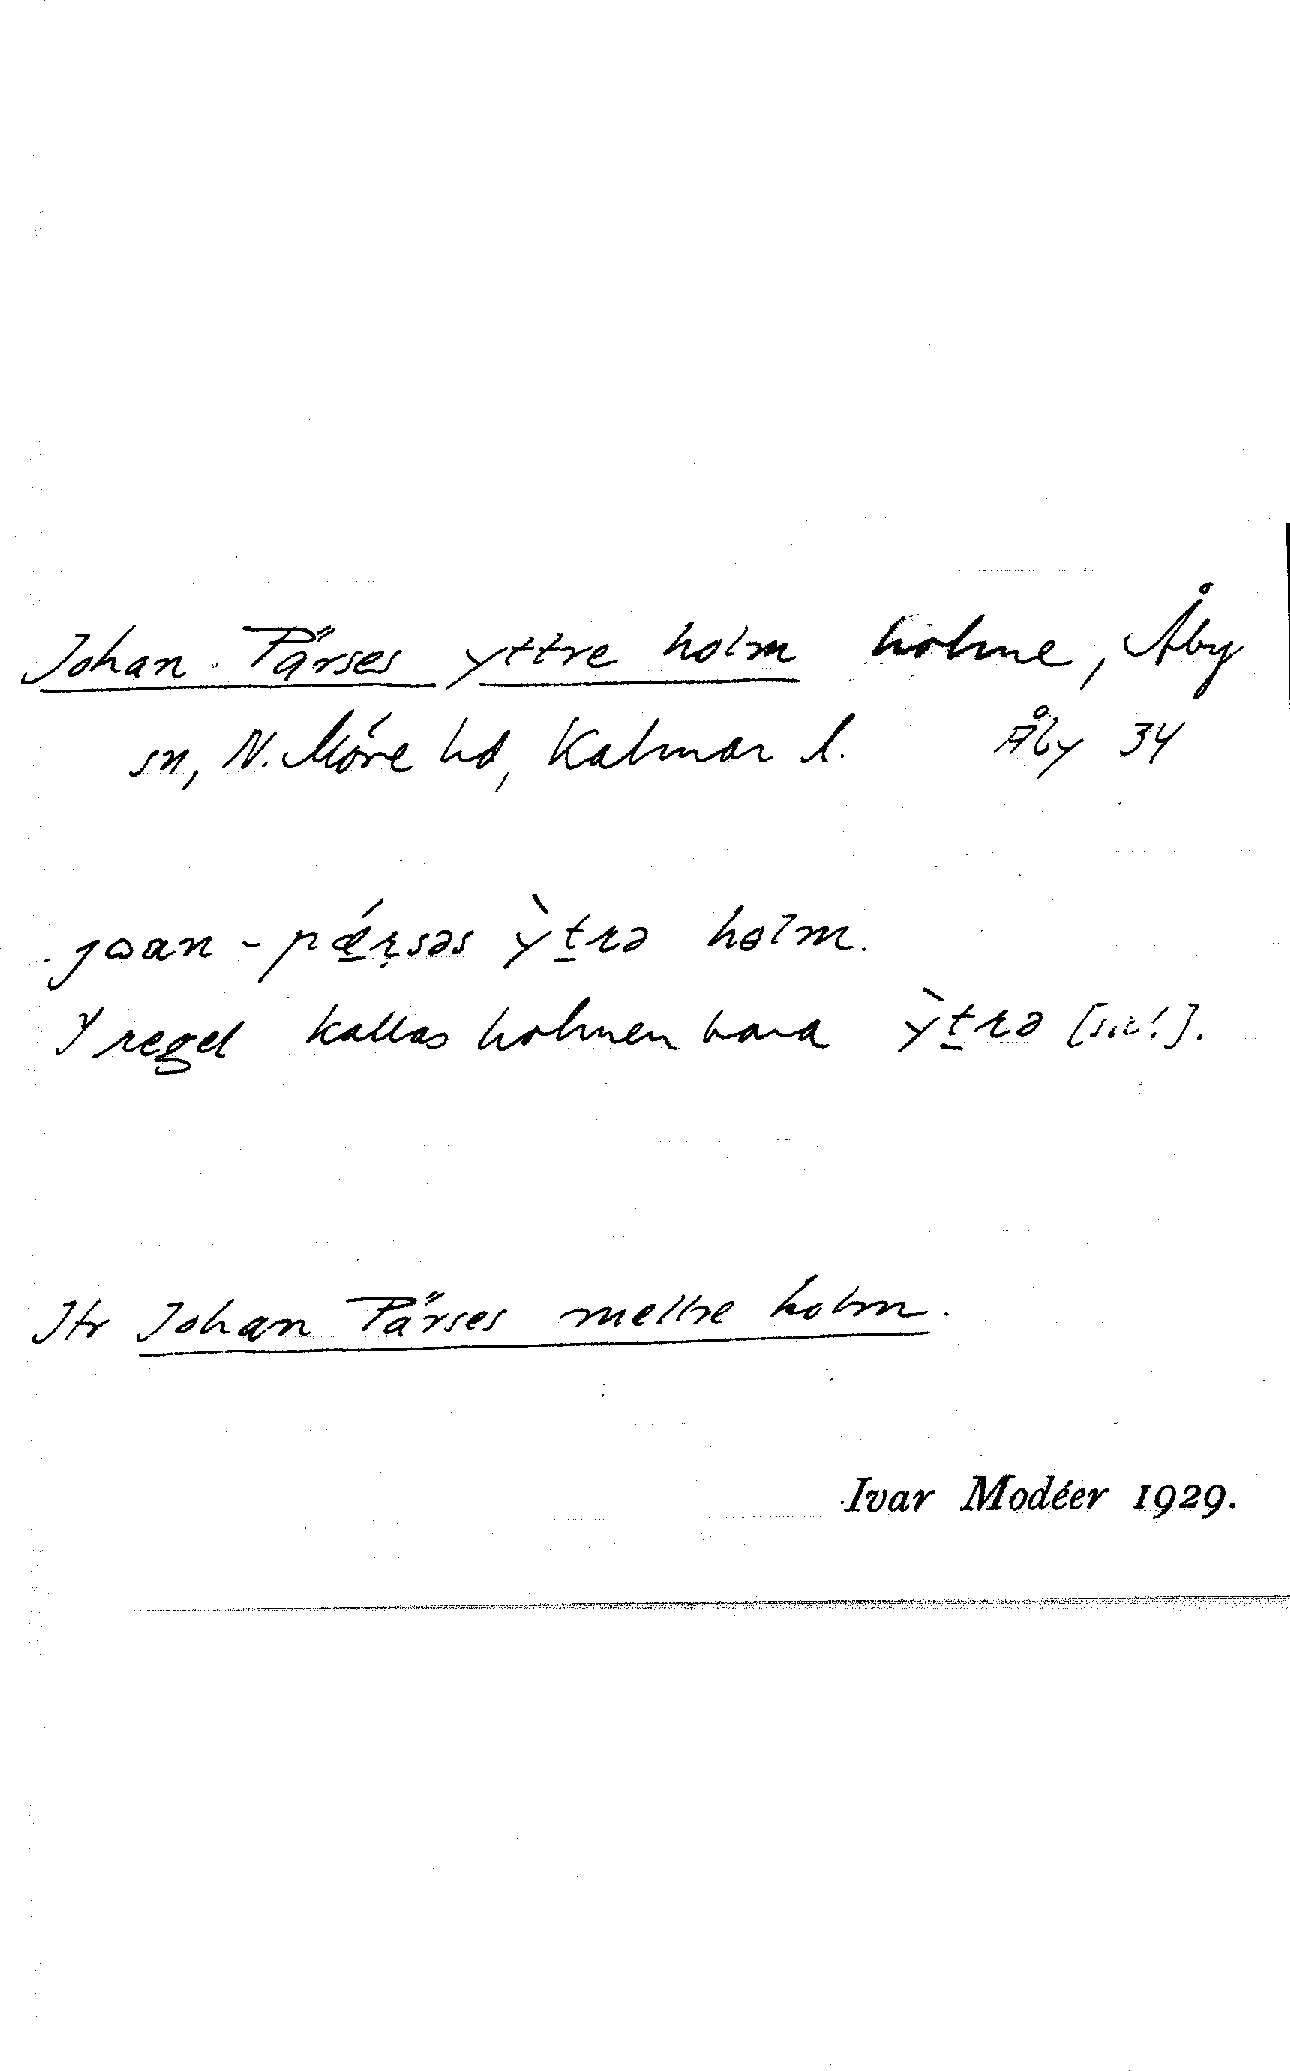 Johan Pärses yttre holm holme, Åby
sn, N. Möre hd, Kalmar l. Åby 34
jωan-pǽṛsəs ỳt̠rə hɵlm.
I regel kallas holmen bara ỳt̠rə [sic!].
Jfr Johan Pärses mellre holm.
Ivar Modéer 1929.